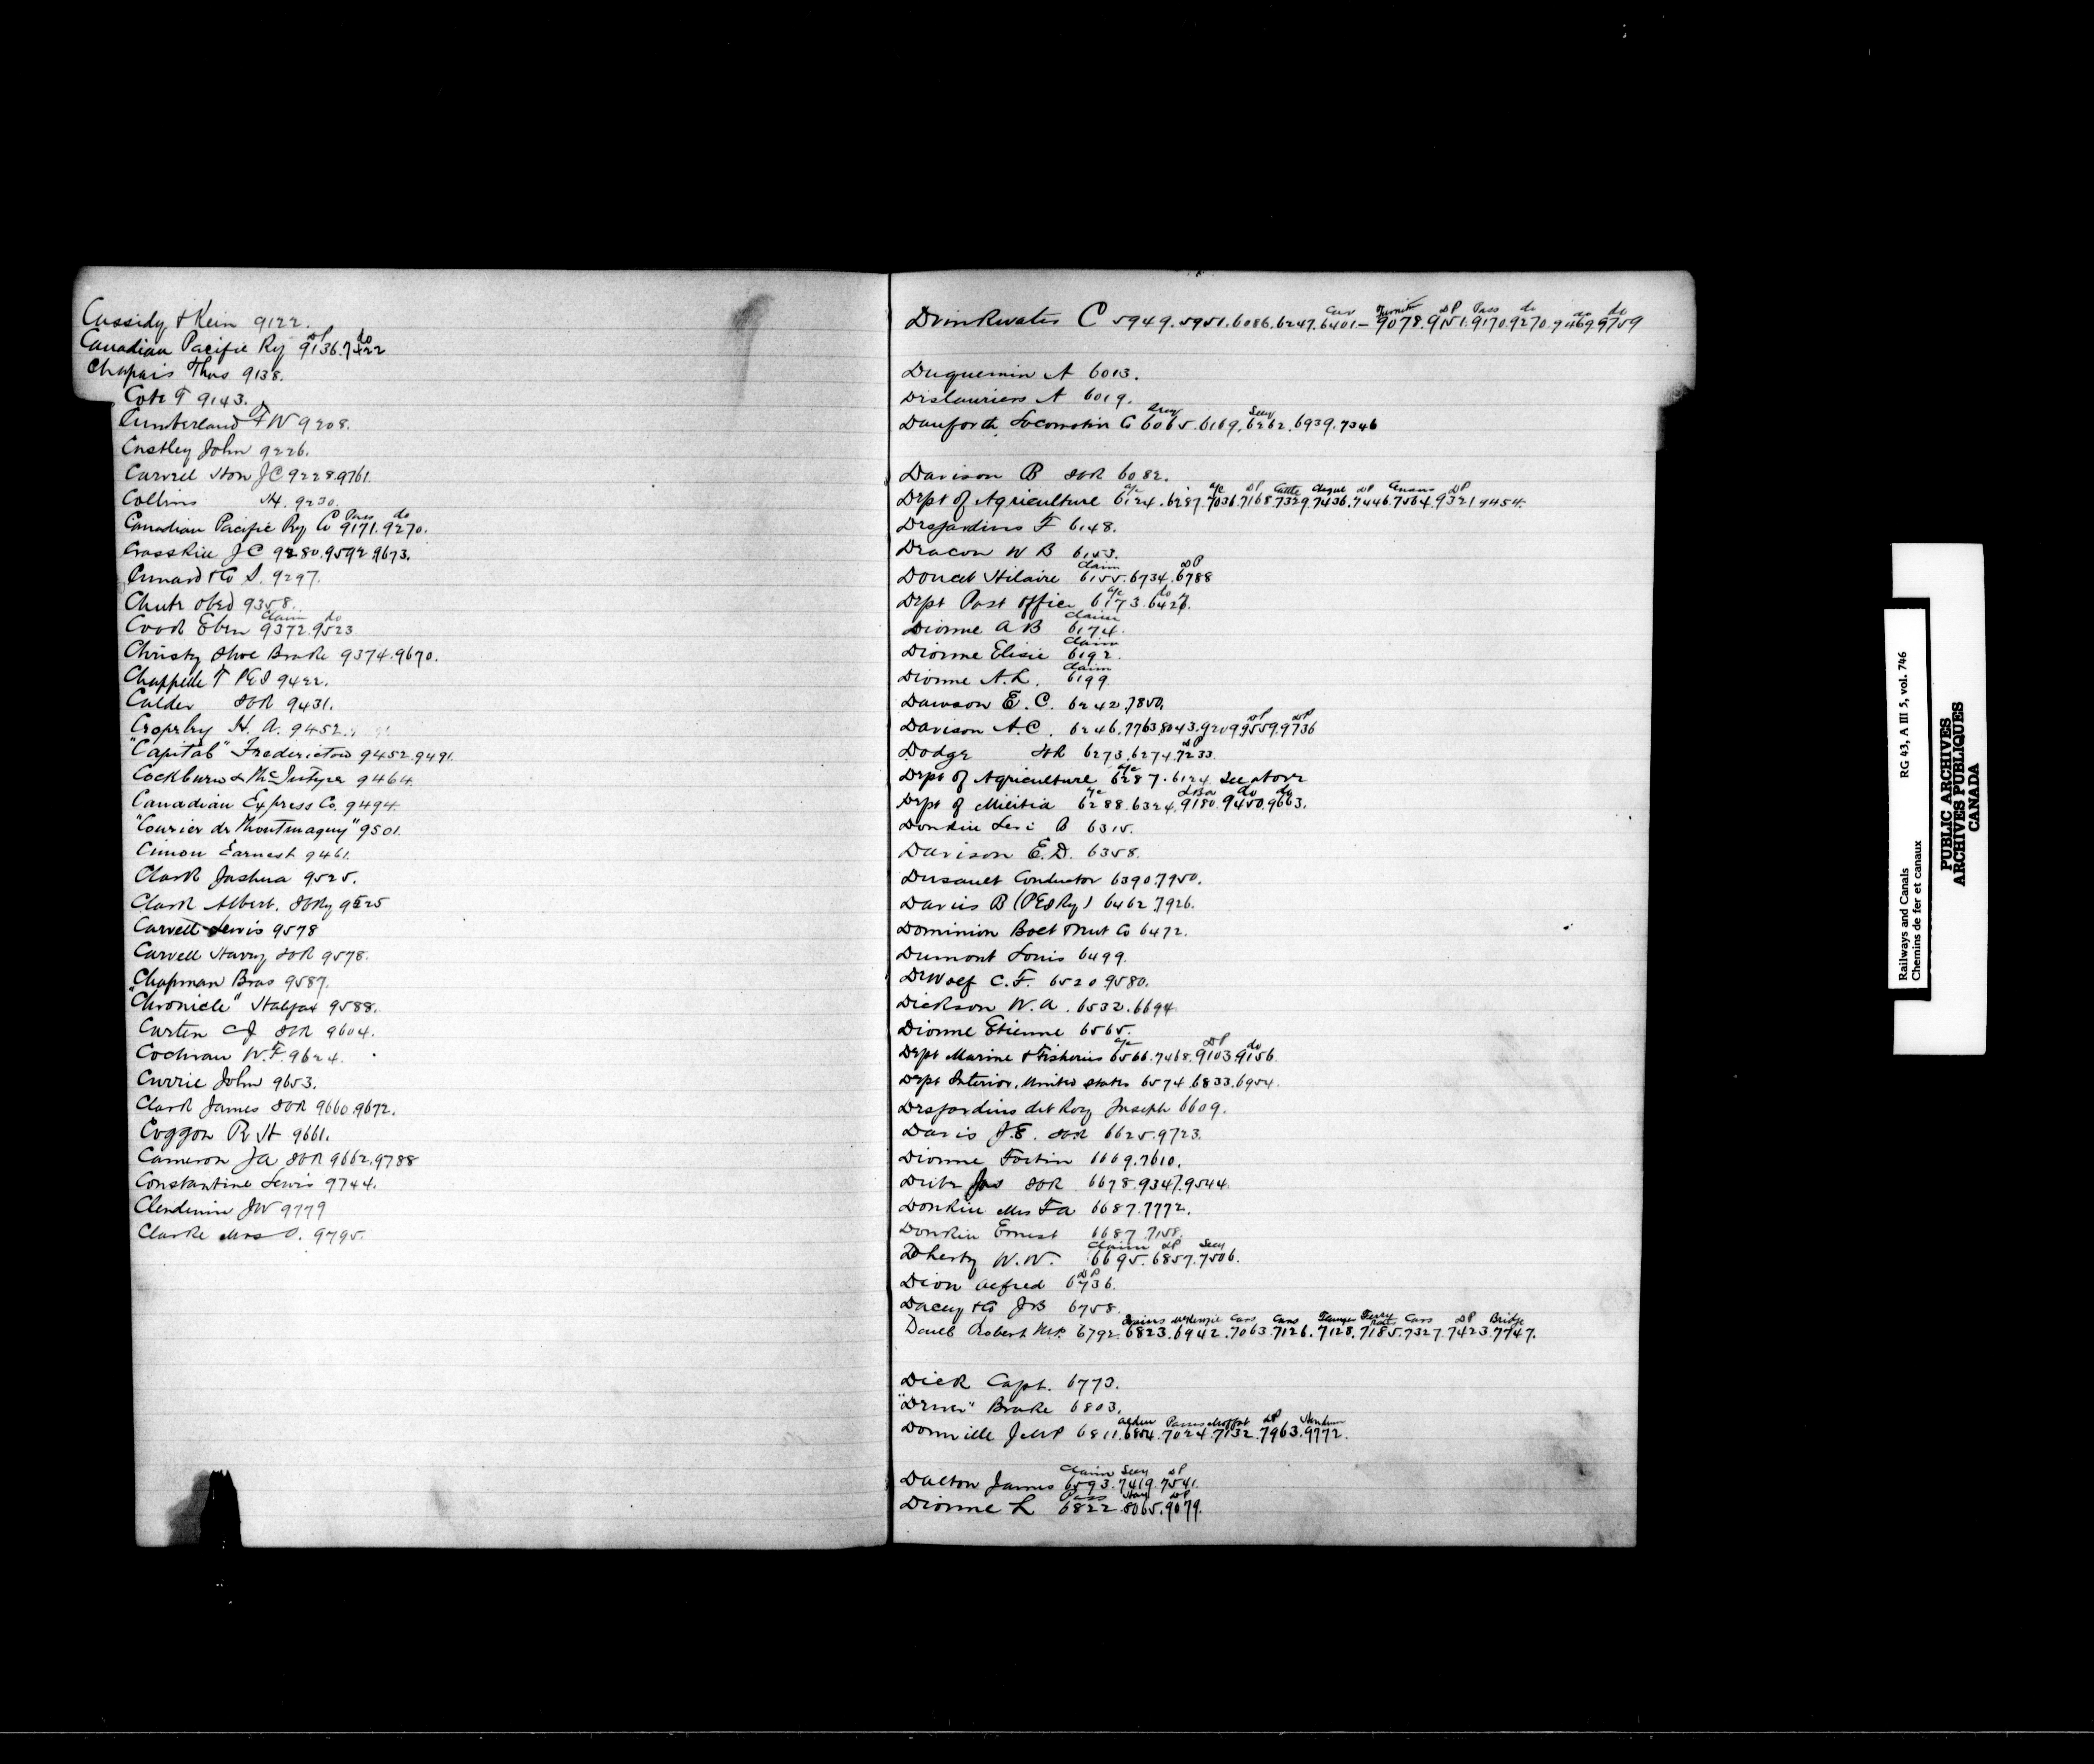 Cassidy & Kein 9122.
DP do
Canadian Pacific Ry 9136.7422
Chapais Thos 9138.
Cote T 9143.
Cumberland F W 9208.
Costley John 9226.
Carvell Hon J C 9228.9761.
Collins H. 9230.
Pass do
Canadian Pacific Ry Co 9171.9270.
Crosskill J C 9280.9592.9673.
Cunard & Co S. 9297.
Chute Obed 9358.
Claim do
Cook Eben 9372.9523
Christy Shoe Brake 9374.9670.
Chappelle T PEI 9422.
Calder ICR 9431.
Cropley H. A. 9452.
"Capital" Fredericton 9452.9491.
Cockburn & McIntyre 9464.
Canadian Express Co. 9494.
"Courier de Montmagny" 9501.
Cimon Earnest 9461.
Clark Joshua 9525.
Clark Albert. ICRy 9525
Carvell Lewis 9578
Carvell Harry ICR 9578.
Chapman Bros 9587.
"Chronicle" Halifax 9588.
Curten C J ICR 9604.
Cochran W. F. 9624.
Currie John 9653.
Clark James ICR 9660.9672.
Coggon R H 9661.
Cameron J A ICR 9662.9788
Constantine Lewis 9744.
Clendinin J W 9779
Clarke Mrs S. 9795.
Car DP Pass do do do
Drinkwater C 5949.5951.6086.6247.6401–9078.9151.9170.9270.9469.9759
Duquemin A 6013.
Deslauriers A 6019.
Secy
Danforth Locomotive Co 6065.6169.6262.6939.7346
Davison B ICR 6082.
a/c a/c DP Cattle Cheque DP Census DP
Dept of Agriculture 6124.6287.7036.7168.7329.7436.7446.7564.9321.9454.
Desjardins F 6148.
Deacon W B 6153.
Claim DP
Doucet Hilaire 6155.6734.6788
a/c do
Dept Post Office 6173.6426.
Claim
Dionne A B 6174.
Claim
Dionne Elisie 6192.
Claim
Dionne A. L. 6199
Dawson E. C. 6242.7850.
DP DP
Davison A. C. 6246.7763.8043.9209.9559.9736
DP
Dodge ICR 6273.6274.7233
a/c
Dept of Agriculture 6287.6124. See above
a/c do do
Dept of Militia 6288.6324.9180.9450.9663.
Donkin Levi B 6315.
Davison E. D. 6358.
Dusault Conductor 6390.7950.
Davies B (PEI Ry) 6462.7926.
Dominion Bolt & Nut Co 6472.
Dumont Louis 6499.
DeWolf C. F. 6520.9580.
Dickson W. A. 6532.6694.
Dionne Etienne 6565.
a/c DP do
Dept Marine & Fisheries 6566.7468.9103.9156.
Dept Interior, United States 6574.6833.6954.
Desjardins dit Roy Joseph 6609.
Davis J. E. ICR 6625.9723.
Dionne Fortin 6669.7610.
Jas ICR 6678.9347.9544.
Donkin Mrs F A 6687.7772.
Donkin Ernest 6687.7158.
Claim DP Secy
Doherty W. W. 6695.6857.7506.
DP
Dion Alfred 6736.
Dacey & Co J B 6758.
McKenzie Cars Cars Flange Ferry Cars DP Bridge
Doull Robert M.P. 6792.6823.6942.7063.7126.7128.7185.7327.7423.7747.
Dick Capt. 6773.
"Driver" Brake 6803.
Moffat DP
Domville J M.P 6811.6854.7024.7132.7963.9772.
Claim Secy DP
Dalton James 6593.7419.7541.
Pass Hay DP
Dionne L 6822.8065.9079.
Railways and Canals RG 43, A III 5, vol. 746
Chemins de fer et canaux
PUBLIC ARCHIVES
ARCHIVES PUBLIQUES
CANADA